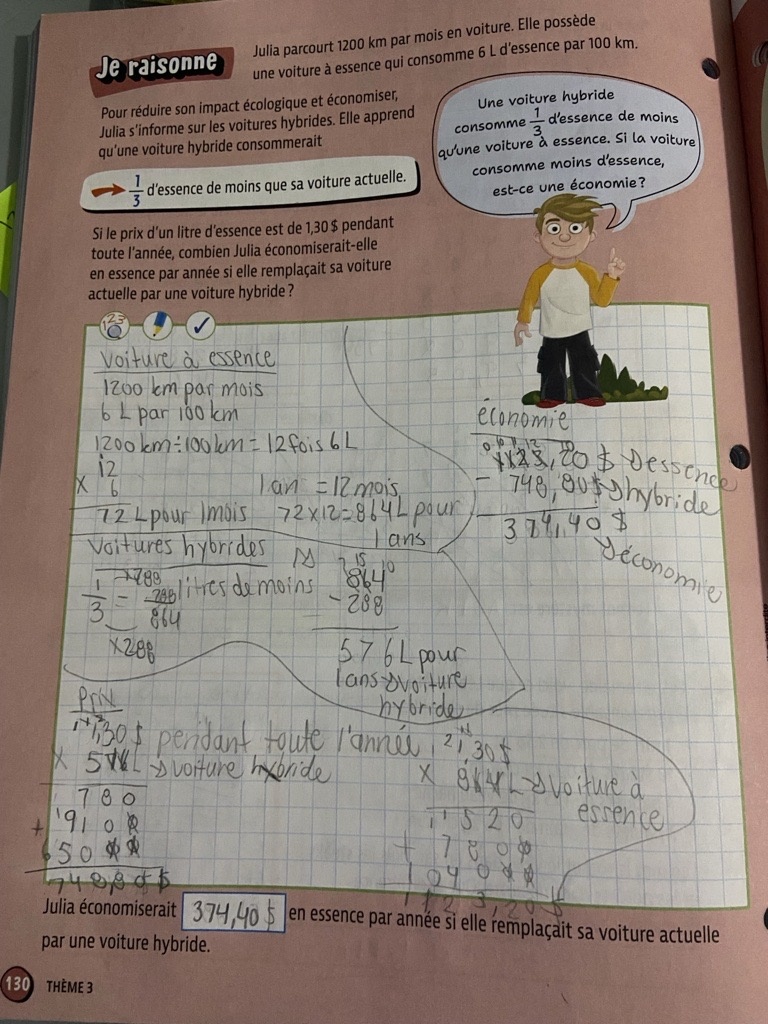 Je raisonne
Julia parcourt 1200 km par mois en voiture. Elle possède
une voiture à essence qui consomme 6 L d'essence par 100 km.
Pour réduire son impact écologique et économiser,
Julia s'informe sur les voitures hybrides. Elle apprend
qu'une voiture hybride consommerait
1/3 d'essence de moins que sa voiture actuelle.
Une voiture hybride
consomme 1/3 d'essence de moins
qu'une voiture à essence. Si la voiture
consomme moins d'essence,
est-ce une économie ?
Si le prix d'un litre d'essence est de 1,30 $ pendant
toute l'année, combien Julia économiserait-elle
en essence par année si elle remplaçait sa voiture
actuelle par une voiture hybride ?
123
Voiture à essence
1200 km par mois
6 L par 100 km
1200 km ÷ 100 km = 12 fois 6 L
12
x 6
72 L pour 1 mois
1 an = 12 mois
72 x 12 = 864 L pour
1 ans
économie
1123,20 $ essence
- 748,80 $ hybride
374,40 $
économie
Voitures hybrides
1/3 = 288/864 litres de moins
x288
864
- 288
576 L pour
1 ans voiture
hybride
Prix
1,30 $ pendant toute l'année
x 576 L voiture hybride
780
+ 910
650
748,80 $
1,30 $
x 864 L voiture à
essence
520
+ 780
1040
1123,20 $
Julia économiserait 374,40 $ en essence par année si elle remplaçait sa voiture actuelle
par une voiture hybride.
130 THÈME 3